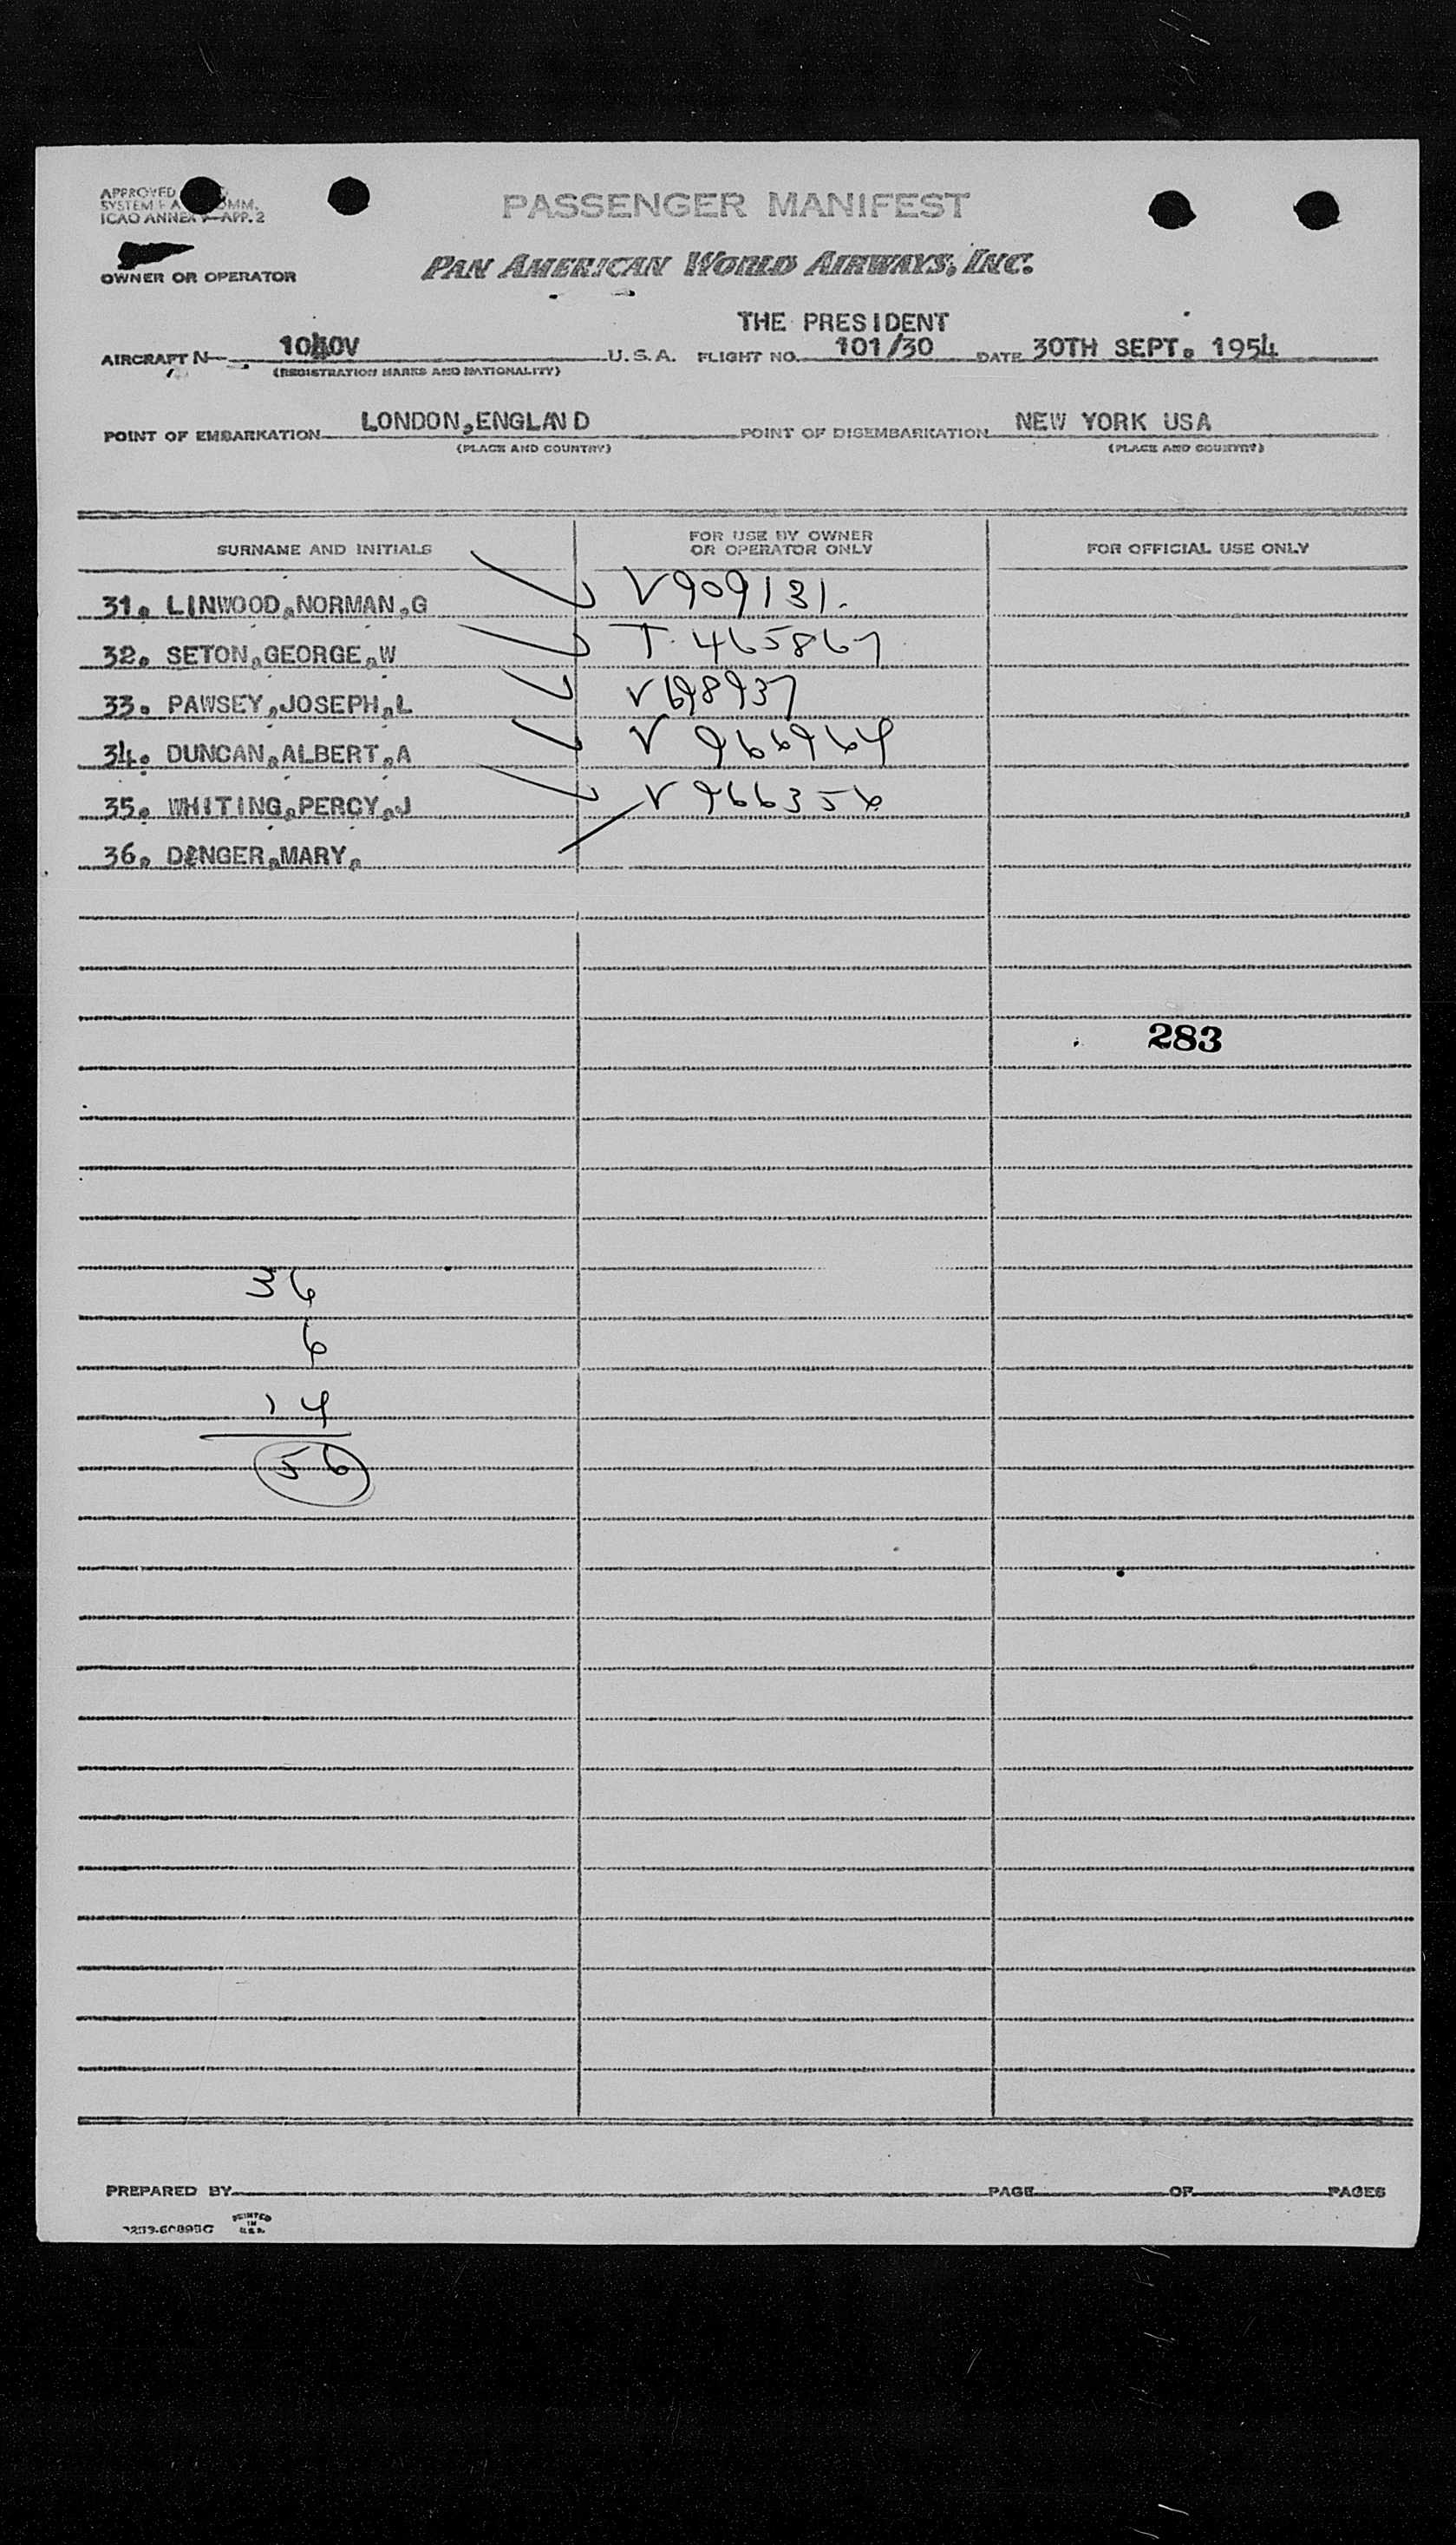 APPROVED
SYSTEM
ICAO ANNEX APP. 2
PASSENGER MANIFEST
OWNER OR OPERATOR
PAN AMERICAN WORLD AIRWAYS, INC.
THE PRESIDENT
AIRCRAFT N 1040V U.S.A. FLIGHT NO. 101/30 DATE 30TH SEPT. 1954
(REGISTRATION MARKS AND NATIONALITY)
POINT OF EMBARKATION LONDON,ENGLAND POINT OF DISEMBARKATION NEW YORK USA
(PLACE AND COUNTRY) (PLACE AND COUNTRY)
SURNAME AND INITIALS FOR USE BY OWNER OR OPERATOR ONLY FOR OFFICIAL USE ONLY
31. LINWOOD,NORMAN,G V909131.
32. SETON,GEORGE,W T.465867
33. PAWSEY,JOSEPH,L V698937
34. DUNCAN,ALBERT,A V 966964
35. WHITING,PERCY,J V 966356
36. MARY,
283
36
6
14
56
PREPARED BY PAGE OF PAGES
PRINTED
IN
U.S.A.